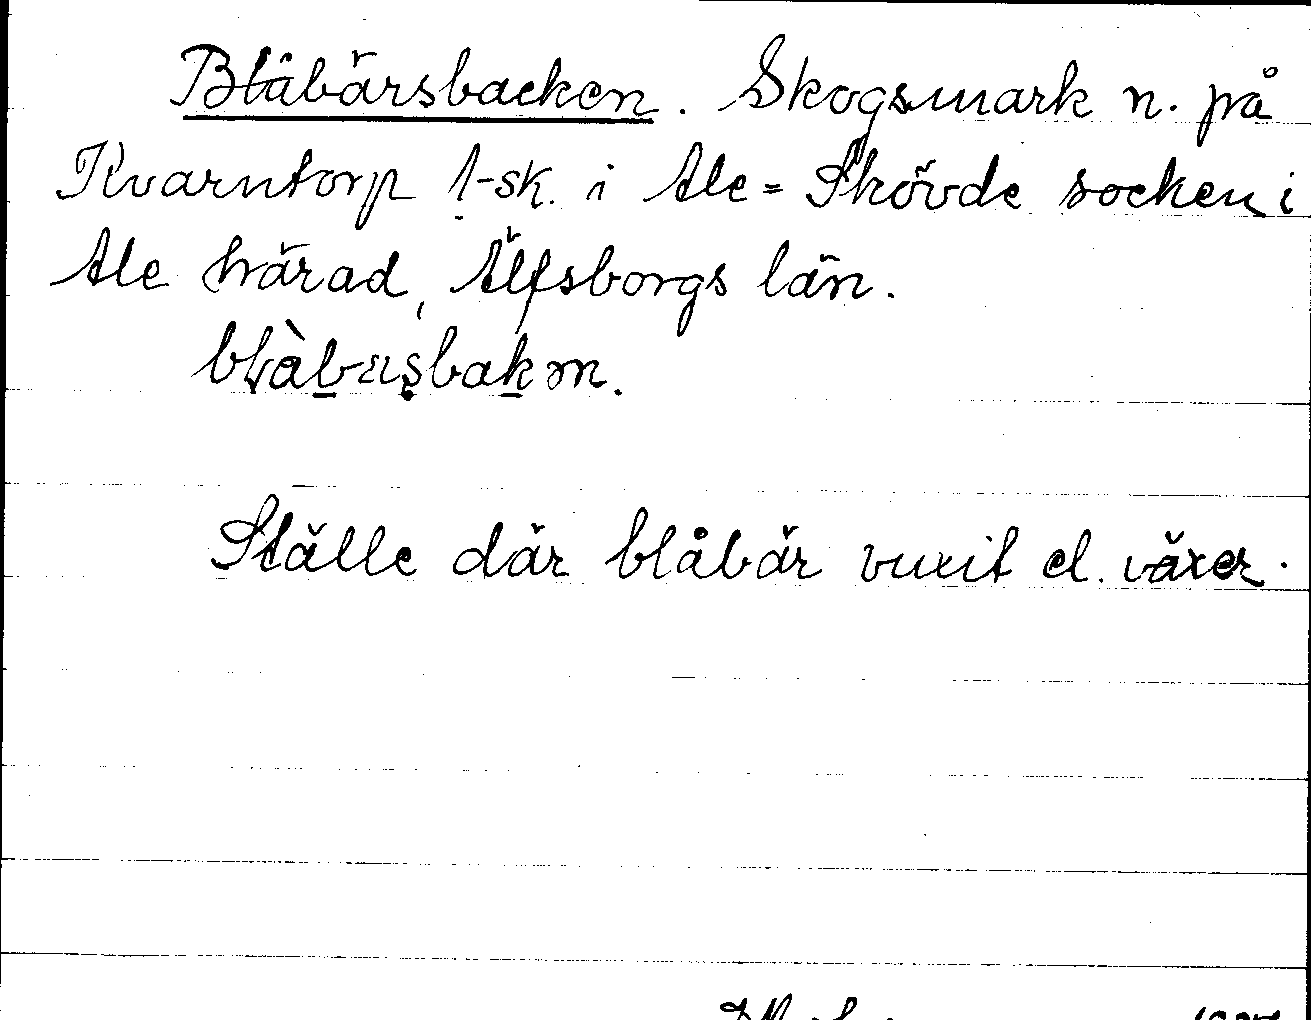 Blåbärsbacken. Skogsmark n. på
Kvarntorp 1-sk. i Ale=Skövde socken i
Ale härad, Älfsborgs län.
Ställe där blåbär vuxit el. växer.